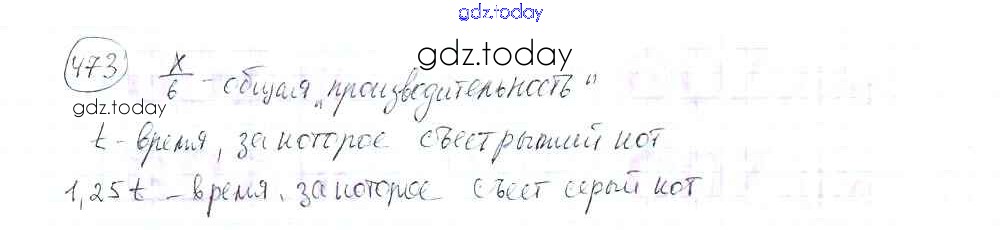 gdz.today
gdz.today
473 x/6 - общая „производительность"
gdz.today
t - время, за которое съест рыжий кот
1,25t - время, за которое съест серый кот